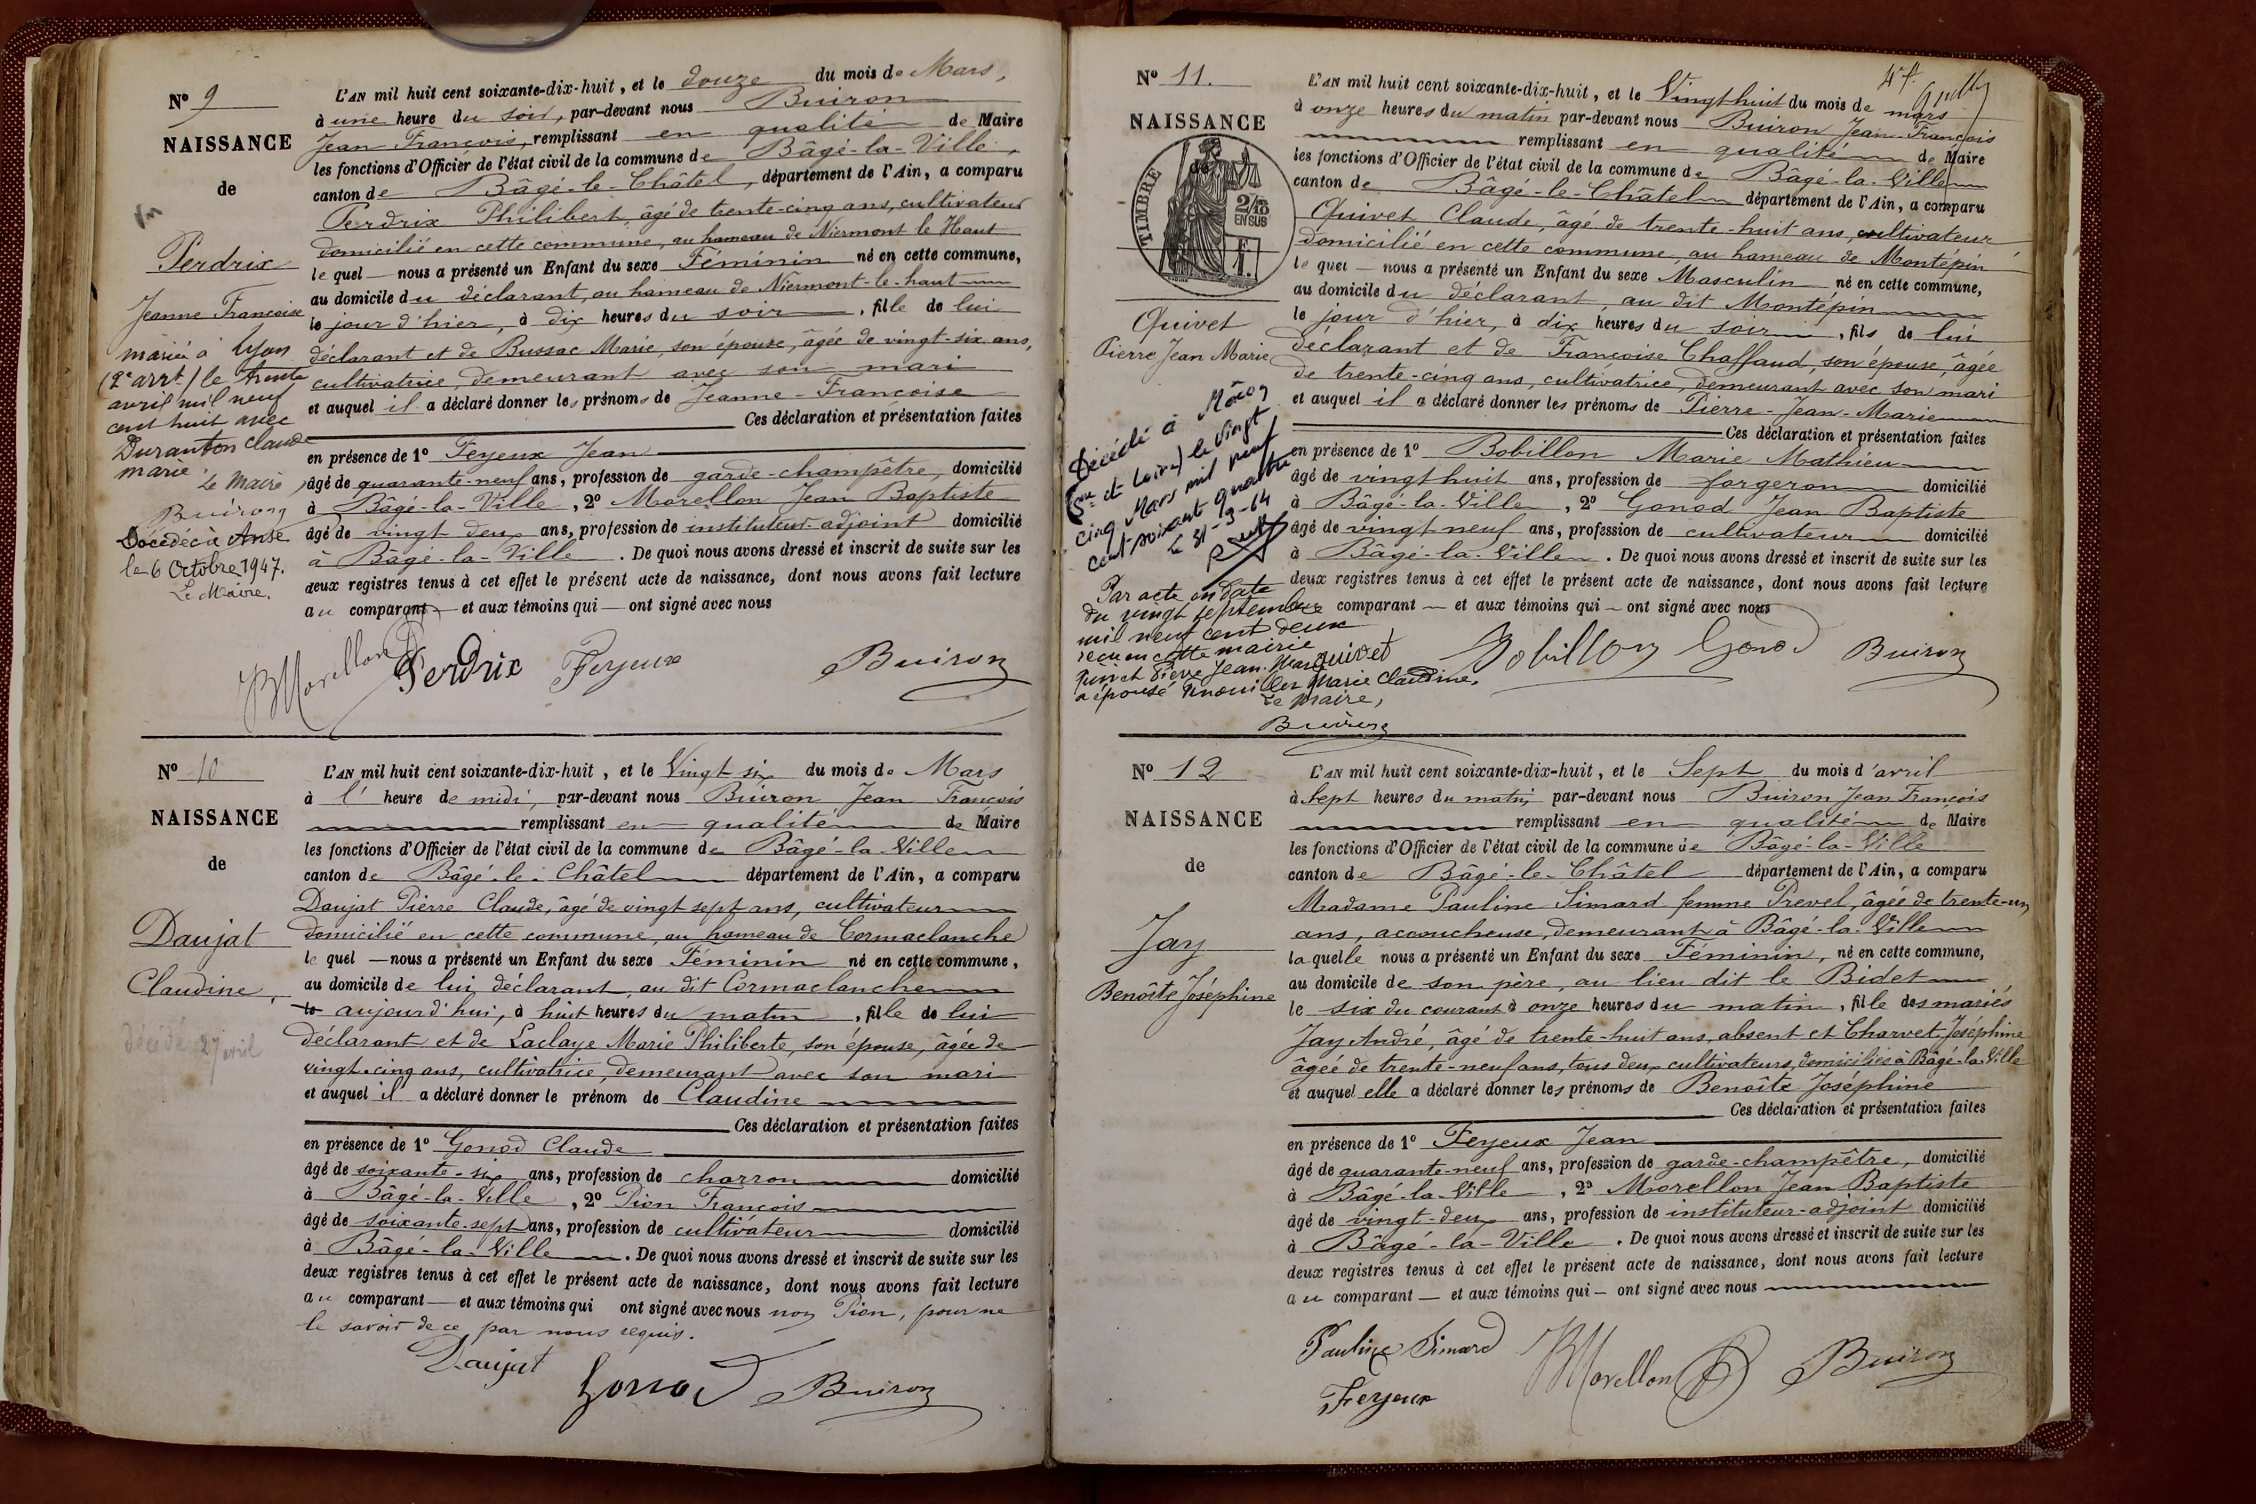 No 9
NAISSANCE
de
Perdrix
Jeanne Françoise
mariée à Lyon
(2e arrt) le trente
avril mil neuf
cent huit avec
Duranton Claude
marie.
Le Maire,
Buiron
Décédée à Anse
le 6 Octobre 1947.
Le Maire.
L'AN mil huit cent soixante-dix-huit, et le douze du mois de Mars,
à une heure du soir, par-devant nous Buiron
Jean François, remplissant en qualité de Maire
les fonctions d'Officier de l'état civil de la commune de Bâgé-la-Ville,
canton de Bâgé-le-Châtel, département de l'Ain, a comparu
Perdrix Philibert, âgé de trente-cinq ans, cultivateur
domicilié en cette commune, au hameau de Niermont le Haut
le quel nous a présenté un Enfant du sexe Féminin né en cette commune,
au domicile du déclarant, au hameau de Niermont-le-haut
le jour d'hier, à dix heures du soir, fille de lui
déclarant et de Bussac Marie, son épouse, âgée de vingt-six ans,
cultivatrice, demeurant avec son mari
et auquel il a déclaré donner les prénoms de Jeanne-Françoise
Ces déclaration et présentation faites
en présence de 1º Feyeux Jean
âgé de quarante-neuf ans, profession de garde-champêtre, domicilié
à Bâgé-la-Ville, 2º Morellon Jean Baptiste
âgé de vingt deux ans, profession de instituteur-adjoint domicilié
à Bâgé-la-Ville. De quoi nous avons dressé et inscrit de suite sur les
deux registres tenus à cet effet le présent acte de naissance, dont nous avons fait lecture
au comparant et aux témoins qui ont signé avec nous
JBMorellon Perdrix Feyeux Buiron
No 10
NAISSANCE
de
Daujat
Claudine,
décédé 27 avril
L'AN mil huit cent soixante-dix-huit, et le Vingt-six du mois de Mars
à l' heure de midi, par-devant nous Buiron Jean François
remplissant en qualité de Maire
les fonctions d'Officier de l'état civil de la commune de Bâgé-la-Ville
canton de Bâgé-le-Châtel département de l'Ain, a comparu
Daujat Pierre Claude, âgé de vingt sept ans, cultivateur
domicilié en cette commune, au hameau de Cormaclanche
le quel nous a présenté un Enfant du sexe Féminin né en cette commune,
au domicile de lui déclarant, au dit Cormaclanche
le aujourd'hui, à huit heures du matin, fille de lui
déclarant et de Laclaye Marie Philiberte, son épouse, âgée de
vingt-cinq ans, cultivatrice, demeurant avec son mari
et auquel il a déclaré donner le prénom de Claudine
Ces déclaration et présentation faites
en présence de 1º Gonod Claude
âgé de soixante-six ans, profession de charron domicilié
à Bâgé-la-Ville, 2º Pion François
âgé de soixante-sept ans, profession de cultivateur domicilié
à Bâgé-la-Ville. De quoi nous avons dressé et inscrit de suite sur les
deux registres tenus à cet effet le présent acte de naissance, dont nous avons fait lecture
au comparant et aux témoins qui ont signé avec nous non Pion, pour ne
le savoir de ce par nous requis.
Daujat Gonod Buiron
47
No 11.
NAISSANCE
de
TIMBRE
2/10
EN SUS
Quivet
Pierre Jean Marie
Décédé à Mâcon
(Sne et Loire) le vingt
cinq Mars mil neuf
cent soixante quatre
Le 31-3-64
Par acte en date
du vingt septembre
mil neuf cent deux
reçu en cette mairie
Quivet Pierre Jean Marie
a épousé Marie Claudine.
Le Maire,
Buiron
L'AN mil huit cent soixante-dix-huit, et le Vingt huit du mois de mars
à onze heures du matin par-devant nous Buiron Jean-François
remplissant en qualité de Maire
les fonctions d'Officier de l'état civil de la commune de Bâgé-la-Ville
canton de Bâgé-le-Châtel département de l'Ain, a comparu
Quivet Claude, âgé de trente-huit ans, cultivateur
domicilié en cette commune, au hameau de Montépin
le quel nous a présenté un Enfant du sexe Masculin né en cette commune,
au domicile du déclarant, au dit Montépin
le jour d'hier, à dix heures du soir, fils de lui
déclarant et de Françoise Chaffaud, son épouse, âgée
de trente-cinq ans, cultivatrice, demeurant avec son mari
et auquel il a déclaré donner les prénoms de Pierre-Jean-Marie
Ces déclaration et présentation faites
en présence de 1º Bobillon Marie Mathieu
âgé de vingt huit ans, profession de forgeron domicilié
à Bâgé-la-Ville, 2º Gonod Jean Baptiste
âgé de vingt-neuf ans, profession de cultivateur domicilié
à Bâgé-la-Ville. De quoi nous avons dressé et inscrit de suite sur les
deux registres tenus à cet effet le présent acte de naissance, dont nous avons fait lecture
comparant et aux témoins qui ont signé avec nous
quivet Bobillon Gonod Buiron
No 12
NAISSANCE
de
Jay
Benoîte Joséphine
L'AN mil huit cent soixante-dix-huit, et le Sept du mois d'avril
à Sept heures du matin, par-devant nous Buiron Jean François
remplissant en qualité de Maire
les fonctions d'Officier de l'état civil de la commune de Bâgé-la-Ville
canton de Bâgé-le-Châtel département de l'Ain, a comparu
Madame Pauline Simard femme Prevel, âgée de trente-un
ans, accoucheuse, demeurant à Bâgé-la-Ville
la quelle nous a présenté un Enfant du sexe Féminin, né en cette commune,
au domicile de son père, au lieu dit le Bidet
le six du courant à onze heures du matin, fille des mariés
Jay André, âgé de trente-huit ans, absent et Charvet Joséphine
âgée de trente-neuf ans, tous deux cultivateurs, domiciliés à Bâgé-la-Ville
et auquel elle a déclaré donner les prénoms de Benoîte Joséphine
Ces déclaration et présentation faites
en présence de 1º Feyeux Jean
âgé de quarante-neuf ans, profession de garde-champêtre, domicilié
à Bâgé-la-Ville, 2º Morellon Jean Baptiste
âgé de vingt-deux ans, profession de instituteur-adjoint domicilié
à Bâgé-la-Ville. De quoi nous avons dressé et inscrit de suite sur les
deux registres tenus à cet effet le présent acte de naissance, dont nous avons fait lecture
au comparant et aux témoins qui ont signé avec nous
Pauline Simard JBMorellon Buiron
Feyeux